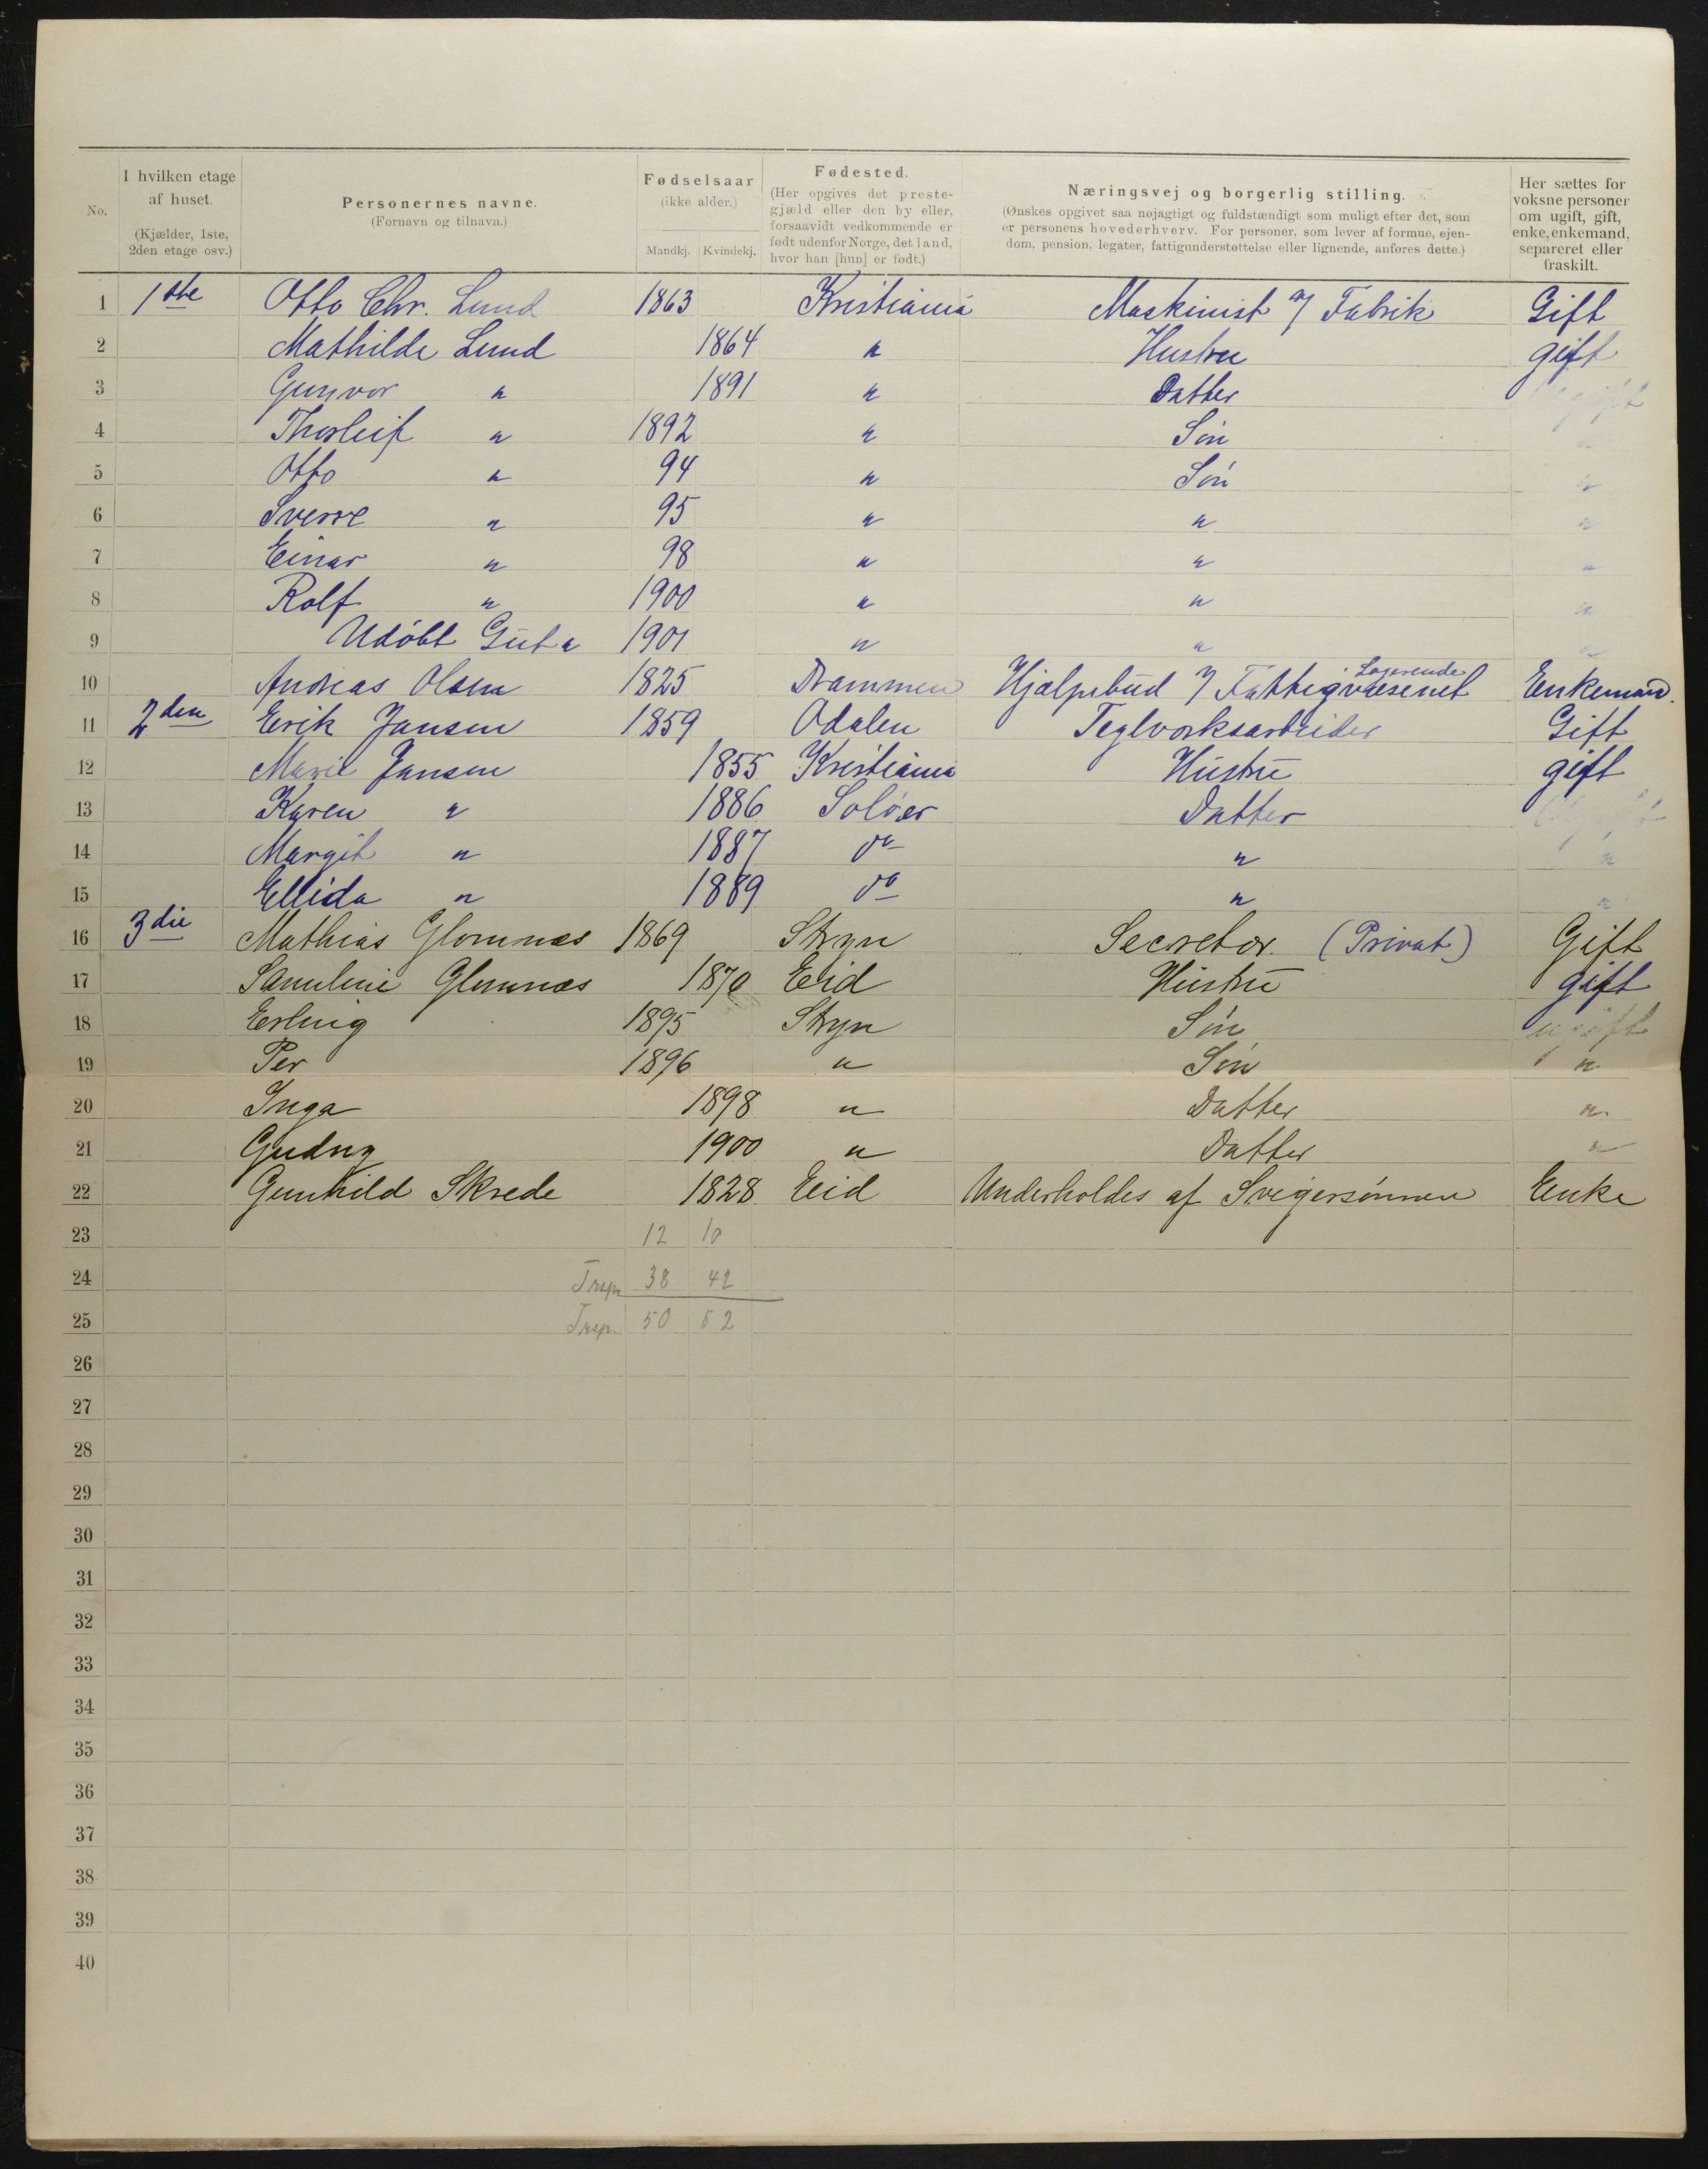 No.
I hvilken etage af huset. (Kjælder, 1ste, 2den etage osv.)
Personernes navne. (Fornavn og tilnavn.)
Fødselsaar (ikke alder.) Mandkj. Kvindekj.
Fødested. (Her opgives det prestegjæld eller den by eller, forsaavidt vedkommende er født udenfor Norge, det land, hvor han [hun] er født.)
Næringsvej og borgerlig stilling. (Ønskes opgivet saa nøjagtigt og fuldstændigt som muligt efter det, som er personens hovederhverv. For personer, som lever af formue, ejendom, pension, legater, fattigunderstøttelse eller lignende, anføres dette.)
Her sættes for voksne personer om ugift, gift, enke, enkemand, separeret eller fraskilt.
1 1ste Otto Chr. Lund 1863 Kristiania Maskinist / Fabrik Gift
2 Mathilde Lund 1864 " Hustru gift
3 Gunvor " 1891 " Datter Ugift
4 Thorleif " 1892 " Søn "
5 Otto " 94 " Søn "
6 Sverre " 95 " " "
7 Einar " 98 " " "
8 Rolf " 1900 " " "
9 Udøbt Gut " 1901 " " "
10 Andreas Olsen 1825 Drammen Hjælpebud / Fattigvæsenet Logerende Enkemand.
11 2den Erik Jansen 1859 Odalen Teglverksarbeider Gift
12 Marie Jansen 1855 Kristiania Hustru gift
13 Karen " 1886 Soløer Datter Ugift
14 Margit " 1887 do " "
15 Ellida " 1889 do " "
16 3die Mathias Glomnæs 1869 Stryn Secretær. (Privat) Gift
17 Samuline Glomnæs 1870 Eid Hustru gift
18 Erling 1895 Stryn Søn ugift
19 Per 1896 " Søn "
20 Inga 1898 " Datter "
21 Gudny 1900 " Datter "
22 Gunhild Skrede 1828 Eid Underholdes af Svigersønnen Enke
23 12 10
24 Trsp. 38 42
25 Trsp. 50 52
26
27
28
29
30
31
32
33
34
35
36
37
38
39
40